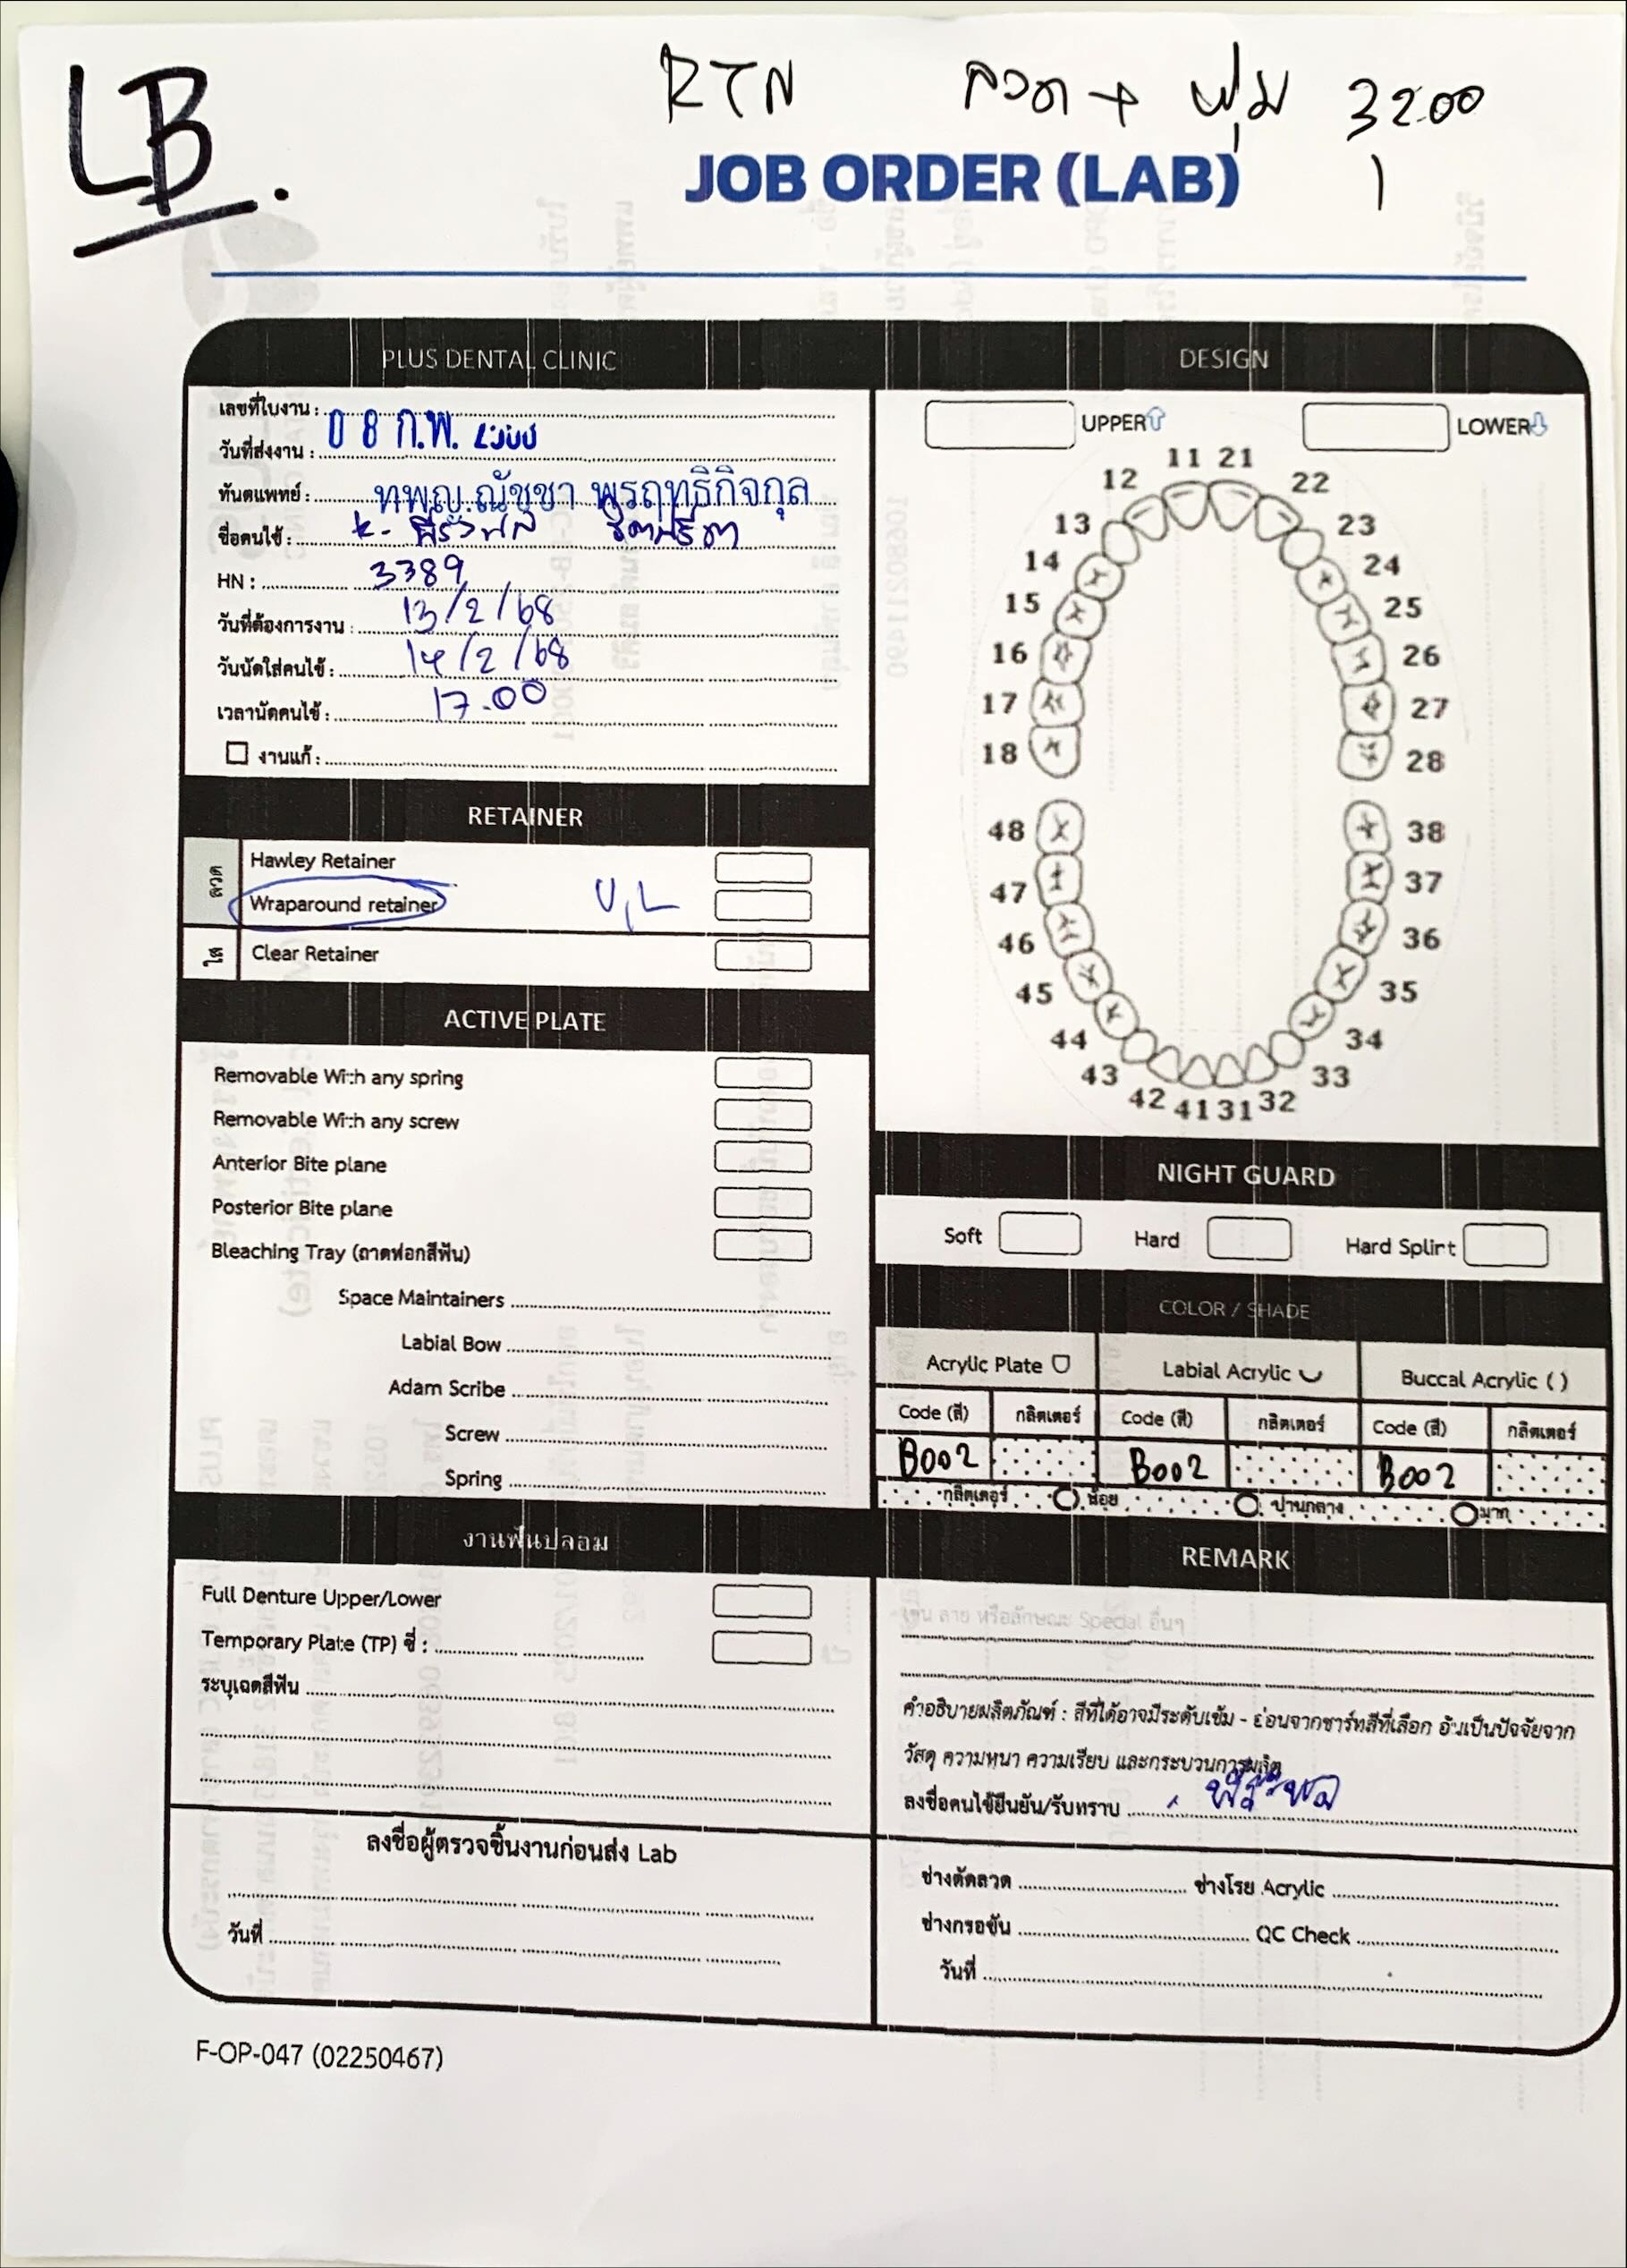 LB.
RTN ลวด + ฟุ่ม 3200
1
JOB ORDER (LAB)
PLUS DENTAL CLINIC
เลขที่ใบงาน :
วันที่ส่งงาน : 08 ก.พ.
ทันตแพทย์ : ทพญ.ณัชชา พรฤทธิกิจกุล
ชื่อคนไข้ : K. พีรวัฬส์
HN : 3389
วันที่ต้องการงาน : 13/2/68
วันนัดใส่คนไข้ : 14/2/68
เวลานัดคนไข้ : 17.00
งานแก้ :
RETAINER
ลวด
Hawley Retainer
Wraparound retainer U,L
ใส
Clear Retainer
ACTIVE PLATE
Removable With any spring
Removable With any screw
Anterior Bite plane
Posterior Bite plane
Bleaching Tray (ถาดฟอกสีฟัน)
Space Maintainers
Labial Bow
Adam Scribe
Screw
Spring
งานฟันปลอม
Full Denture Upper/Lower
Temporary Plate (TP) ซี่ :
ระบุเฉดสีฟัน
ลงชื่อผู้ตรวจชิ้นงานก่อนส่ง Lab
วันที่
DESIGN
UPPER LOWER
11 21
12 22
13 23
14 24
15 25
16 26
17 27
18 28
48 38
47 37
46 36
45 35
44 34
43 33
42 41 31 32
NIGHT GUARD
Soft Hard Hard Splint
COLOR / SHADE
Acrylic Plate Labial Acrylic Buccal Acrylic ( )
Code (สี) กลิตเตอร์ Code (สี) กลิตเตอร์ Code (สี) กลิตเตอร์
B002 B002 B002
กลิตเตอร์ น้อย ปานกลาง มาก
REMARK
เช่น ลาย หรือลักษณะ Special อื่นๆ
คำอธิบายผลิตภัณฑ์ : สีที่ได้อาจมีระดับเข้ม - อ่อนจากชาร์ทสีที่เลือก อันเป็นปัจจัยจาก
วัสดุ ความหนา ความเรียบ และกระบวนการผลิต
ลงชื่อคนไข้ยืนยัน/รับทราบ
ช่างดัดลวด ช่างโรย Acrylic
ช่างกรอขัน QC Check
วันที่
F-OP-047 (02250467)